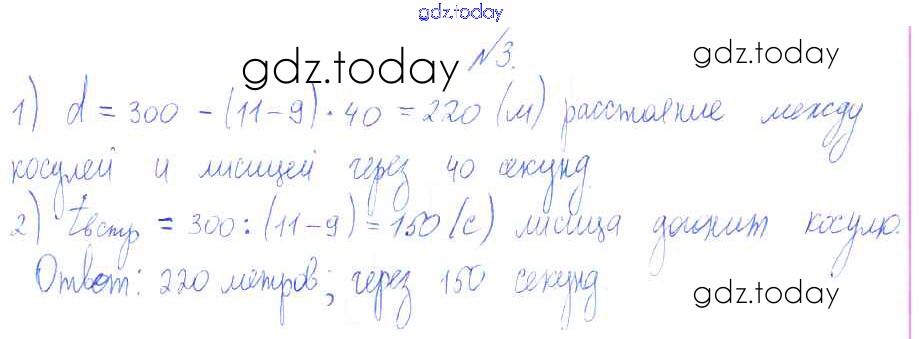 gdz.today
gdz.today №3. gdz.today
1) d = 300 - (11-9) · 40 = 220 (м) расстояние между
косулей и лисицей через 40 секунд.
2) tвстр = 300 : (11-9) = 150 (с) лисица догонит косулю.
Ответ: 220 метров; через 150 секунд.
gdz.today